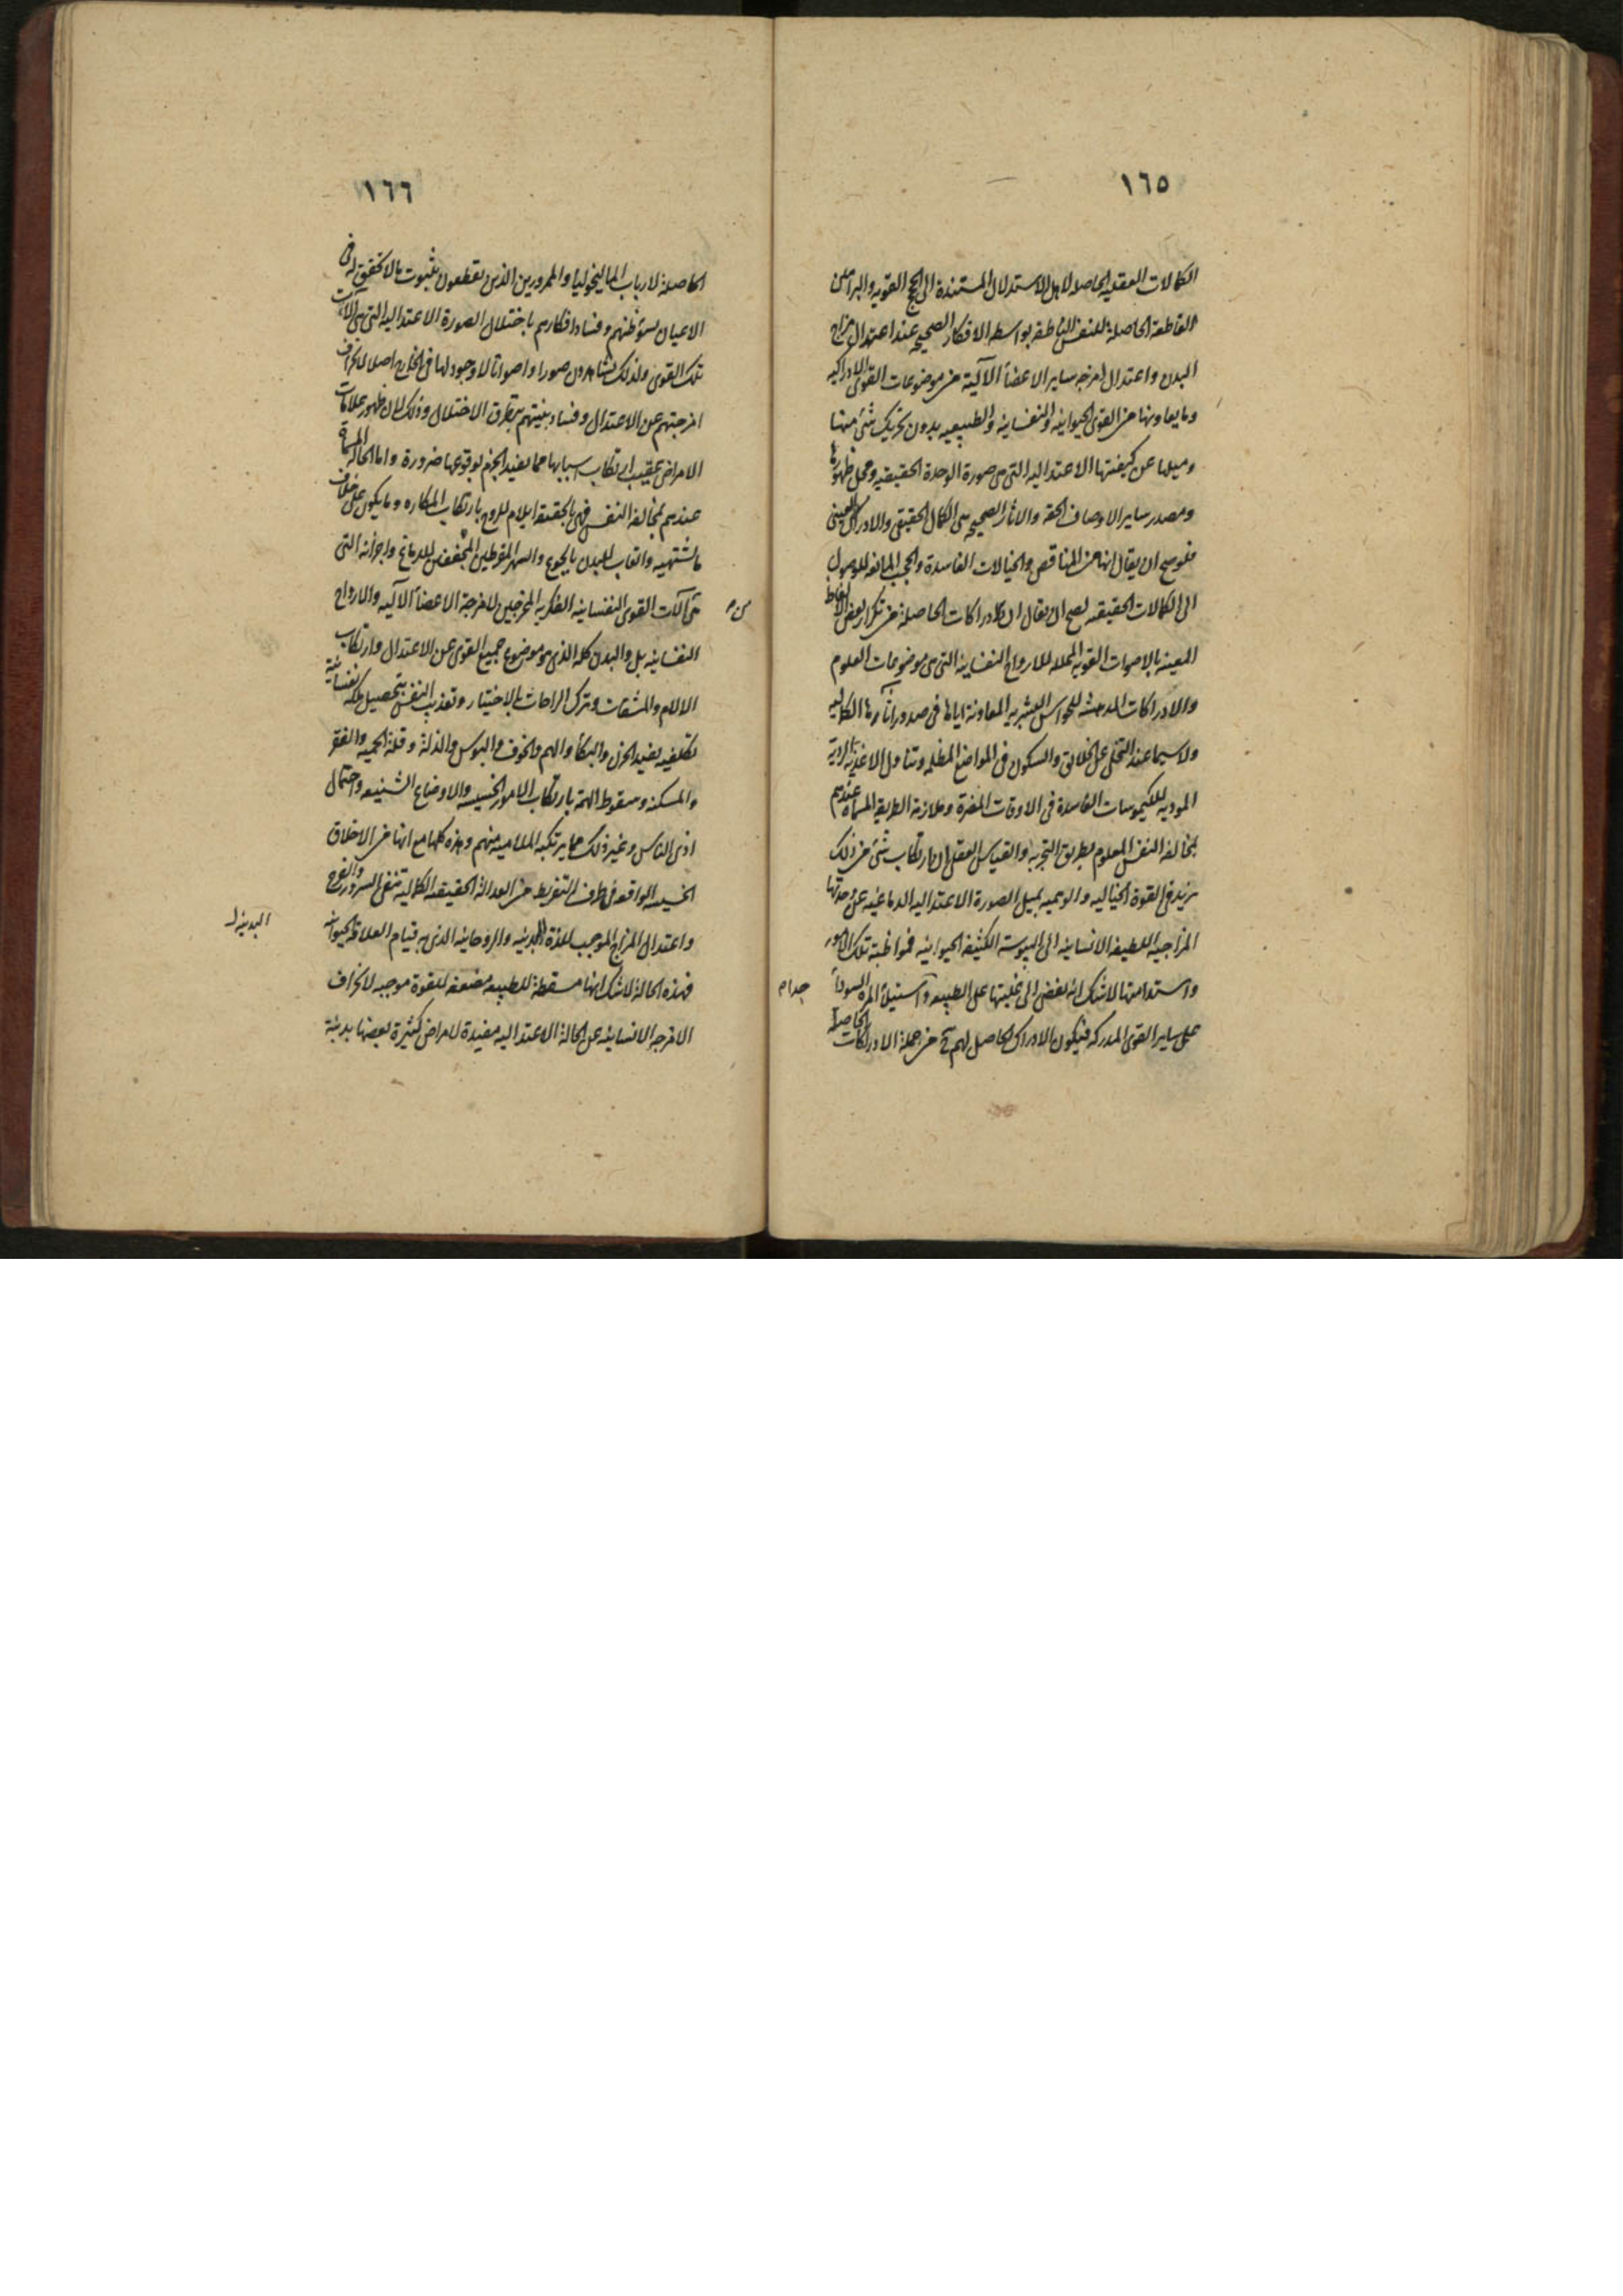 ١٦٥
الكمالات العقلية الحاصلة لاهل الاستدلال المستندة الى الحجج القوية والبراهين
القاطعة الحاصلة للنفس الناطقة بواسطة الافكار الصحيحة عند اعتدال مزاج
البدن واعتدال امزجه ساير الاعضاء الآلية من موضوعات القوى الادراكيه
وما يعاونها من القوى الحيوانيه والنفسانيه والطبيعيه بدون تحريك شئ منها
وميلها عن كيفيتها الاعتداليه التى هى صورة الوحدة الحقيقيه ومحل ظهورها
ومصدر ساير الاوصاف الحقه والاثار الصحيحه هى الكمال الحقيقى والادراك اليقينى
فلو صح ان يقال انها من المناقص والخيالات الفاسدة والحجب المانعه للوصول
الى الكمالات الحقيقيه لصح ان يقال ان الادراكات الحاصلة من تكرار بعض الالفاظ
المعينه بالاصوات القويه المحلله للارواح النفسانيه التى هى موضوعات العلوم
والادراكات المدهشه للحواس البشريه المعاونة اياها فى صدور آثارها الكماليه
ولاسيما عند التخلى عن الخلائق والسكون فى المواضع المظلمه وتناول الاغذية الردية
المودية للكيموسات الفاسدة فى الاوقات المضرة وملازمة الطريق المسماة عندهم
بمخالفه النفس المعلوم بطريق التجربه والقياس العقلى ان ارتكاب شئ من ذلك
يزيد فى القوة الخياليه والوهميه بميل الصورة الاعتداليه الدماغيه عن حدتها
المزاجيه اللطيفه الانسانيه الى اليبوسة الكثيفه الحيوانيه فمواظبة تلك الامور
واستدامتها لاشك انه يفضى الى غلبتها على الطبيعه واستيلاء المرة السوداء
على ساير القوى المدركه فيكون الادراك الحاصل لهم ح من جملة الادراكات الحاصلة
جدا م
١٦٦
الحاصلة لارباب الماليخوليا والمحرورين الذين يقطعون بثبوت مالا تحقق له فى
الاعيان لسوء ظنهم وفساد افكارهم باختلال الصورة الاعتداليه التى هى آلات
تلك القوى ولذلك يشاهدون صورا واصواتا لا وجود لها فى الخارج اصلا لانحراف
امزجتهم عن الاعتدال وفساد بنيتهم بتطرق الاختلال وذلك لان ظهور علامات
الامراض عقيب ارتكاب اسبابها مما يفيد الجزم بوقوعها ضرورة واما الحالة المسماة
عندهم بمخالفة النفس فهى بالحقيقة ايلام للروح بارتكاب المكاره وما يكون على خلاف
ما تشتهيه واتعاب للبدن بالجوع والسهر المفرطين المجففين للدماغ واجزائه التى
هى آلات القوى النفسانيه الفكريه المخرجين لامزجة الاعضاء الآليه والارواح
النفسانيه بل والبدن كله الذى هو موضوع جميع القوى عن الاعتدال وارتكاب
الالام والمشقات وترك الراحات بالاختيار وتعذيب النفس بتحصيل ملكه نفسانية
تكلفيه يفيد الحزن والبكاء والهم والخوف والبوس والذلة وقلة الحميه والفقر
والمسكنه وسقوط الهمة بارتكاب الامور الخسيسه والاوضاع الشنيعه واحتمال
اذى الناس وغير ذلك مما يرتكبه الملاميه منهم وهذه كلها مع انها من الاخلاق
الخسيسه الواقعه فى طرف التفريط من العدالة الحقيقيه الكماليه تنفى السرور والفرح
واعتدال المزاج الموجب للذة البدنيه والروحانيه الذى به قيام العلاقه الحيوانيه
فهذه الحالة لاشك انها مسقطة للطبيعه مضعفه للقوة موجبه لانحراف
الامزجه الانسانيه عن الحالة الاعتداليه مفيدة لامراض كثيرة بعضها بدنية
من م
البدنيه ل